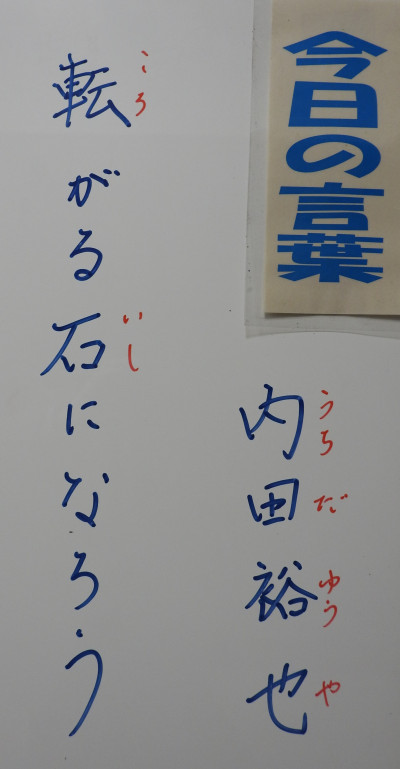 今日の言葉
内田裕也
うちだゆうや
転がる石になろう
ころ
いし